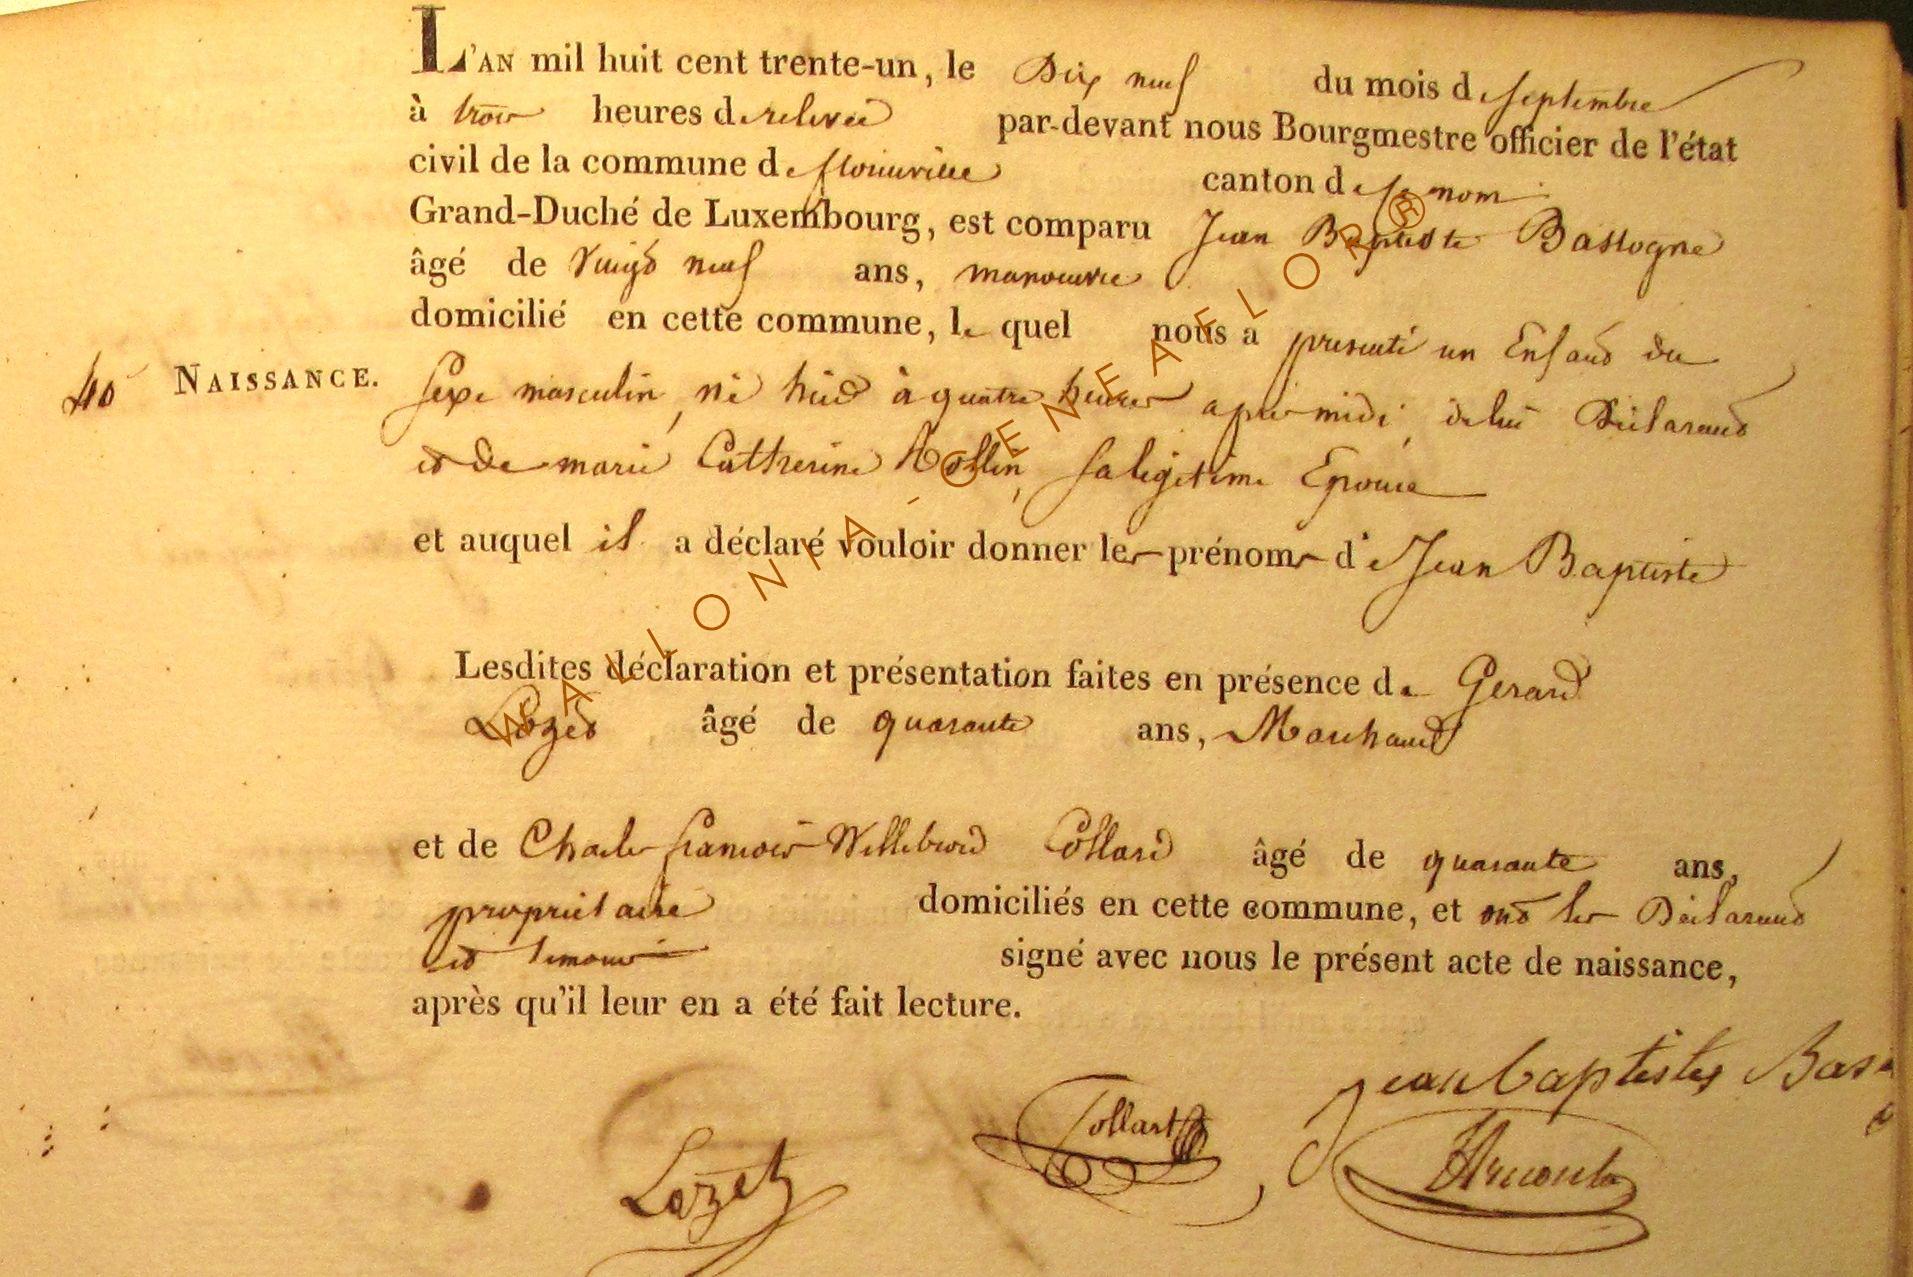 L'AN mil huit cent trente-un, le Dix neuf du mois de septembre
à trois heures de relevée par-devant nous Bourgmestre officier de l'état
civil de la commune de florenville canton de ce nom
Grand-Duché de Luxembourg, est comparu Jean Baptiste Bastogne
âgé de Vingt neuf ans, manoeuvre
domicilié en cette commune, le quel nous a presenté un Enfant du
40 NAISSANCE. sexe masculin, né hier à quatre heures apres midi, de lui Déclarant
et de marie Catherine Rollin, sa legitime Epouse
et auquel il a déclaré vouloir donner les prénoms de Jean Baptiste
Lesdites déclaration et présentation faites en présence de Gerard
Lozet âgé de quarante ans, Marchand
et de Charles francois Willebrord Collard âgé de quarante ans,
propriétaire domiciliés en cette commune, et ont les Déclarant
et temoins signé avec nous le présent acte de naissance,
après qu'il leur en a été fait lecture.
jean baptistes Bas
Collart
Lozet
WALLONIA-GENEAFLOR®